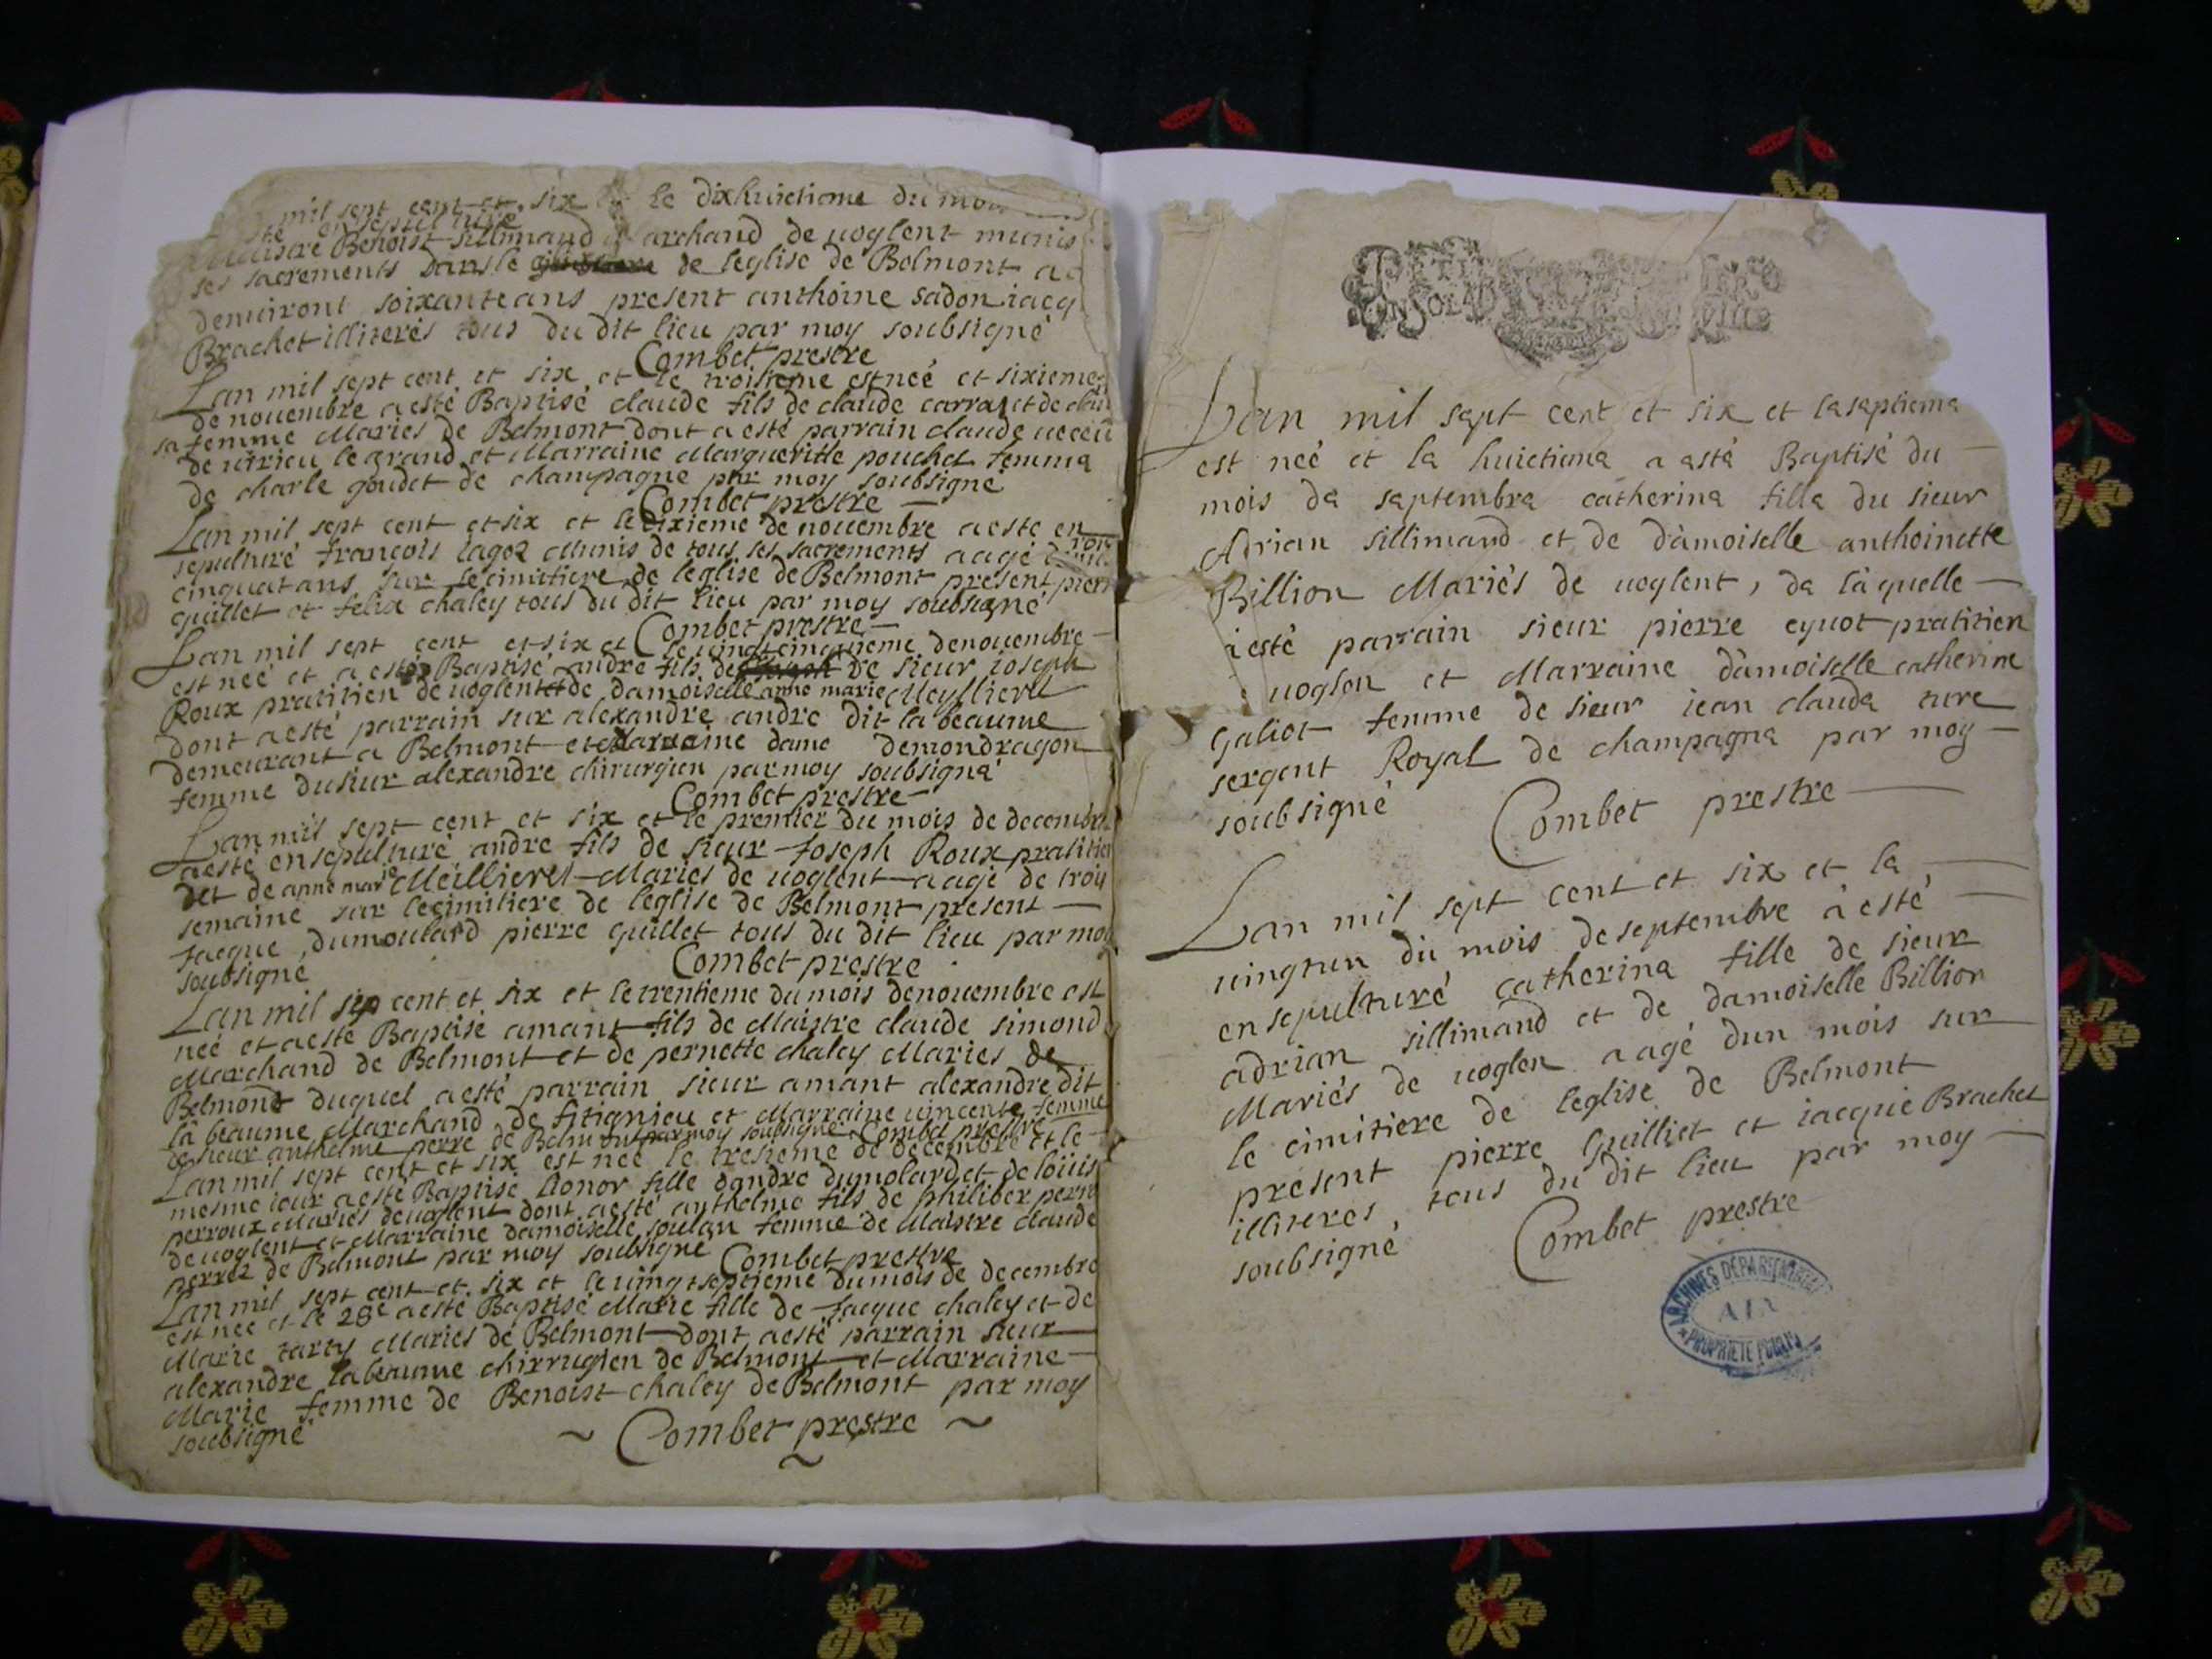 mil sept cent et six le dixhuictieme du mois
esté ensepulturé
Benoist Sillimand marchand de uoglent munis
ses sacrements dans le de leglise de Belmont
denuiront soixante ans present anthoine sadon iacq
Brachet illiterés tous du dit lieu par moy soubsigné
Combet prestre
Lan mil sept cent et six et le troisieme est née et sixieme
de nouembre a esté Baptisé claude fils de claude carra et de
sa femme Mariés de Belmont dont a esté parrain claude
de uirieu le grand et Marraine Margueritte pouchet femme
de charle goudet de champagne par moy soubsigné
Combet prestre
Lan mil sept cent et six et le dixieme de nouembre a esté en
sepulturé françois laget Munis de tous ses sacrements aagé
cinquat ans sur le cimitiere de leglise de Belmont present pierre
guillet et felix chaley tous du dit lieu par moy soubsigné
Combet prestre
Lan mil sept cent et six et le uingtcinquieme de nouembre
est née et a esté Baptisé andre fils de de sieur ioseph
Roux pratitien de uoglent et de damoiselle anne marie Meyllieret
dont a esté parrain sur alexandre andre dit la beaume
demeurant a Belmont et Marraine dame demondragon
femme du sieur alexandre chirurgien par moy soubsigné
Combet prestre
Lan mil sept cent et six et le premier du mois de decembre
a esté ensepulturé andre fils de sieur Joseph Roux pratitien
det de anne marie Meillieret Mariés de uoglent aagé de trois
semaine sur le cimitiere de leglise de Belmont present
Jacque dumoulard pierre guillet tous du dit lieu par moy
soubsigné Combet prestre
Lan mil sep cent et six et le trentieme du mois de nouembre est
née et a esté Baptisé amant fils de Maistre claude simond
Marchand de Belmont et de pernette chaley Mariés de
Belmont duquel a esté parrain sieur amant alexandre dit
la beaume Marchand de fitignieu et Marraine uincente femme
de sieur anthelme perre de Belmont par moy soubsigné Combet prestre
Lan mil sept cent et six est née le tresieme de decembre et le
mesme iour a esté Baptisé lionor fille dandre dumolard et de loüis
perroux Mariés de uoglent dont a esté anthelme fils de philiber
de uoglent et Marraine damoiselle femme de Maistre claude
perret de Belmont par moy soubsigné Combet prestre
Lan mil sept cent et six et le uingtseptieme du mois de decembre
est née et le 28e a esté Baptisé Marie fille de Jacque chaley et de
Marie tarty Mariés de Belmont dont a esté parrain sieur
alexandre labeaume chirrugien de Belmont et Marraine
Marie femme de Benoist chaley de Belmont par moy
soubsigné ~ Combet prestre ~
Lan mil sapt cent et six et la saptiema
est née et la huictiema a asté Baptisé du
mois da saptembra catherina filla du sieur
Adrian Sillimand et de damoiselle anthoinette
Billion Mariés de uoglent, da laquelle
a esté parrain sieur pierre cyuot pratitien
uoglen et Marraine damoiselle catherine
Galiot femme de sieur iean clauda cure
sergent Royal de champagna par moy
soubsigné Combet prestre
Lan mil sept cent et six et la
uingtun du mois de septembre a esté
ensepulturé catherina fille de sieur
adrian sillimand et de damoiselle Billion
Mariés de uoglen aagé dun mois sur
le cimitiere de leglise de Belmont
present pierre Guilliet et iacque Brachet
illiteres tous du dit lieu par moy
soubsigné Combet prestre
ARCHIVES DÉPARTEMENTALES
AIN
PROPRIÉTÉ PUBLIQUE